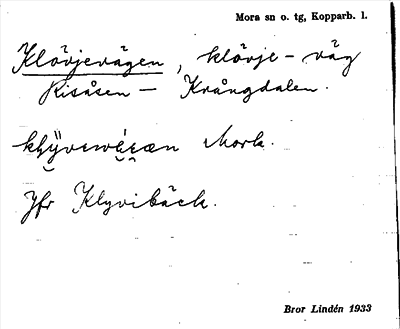 Mora sn o. tg, Kopparb. l.
Klövjevägen, klövje-väg
Risåsen — Krångdalen.
Mork.
Jfr Klyvibäck.
Bror Lindén 1933